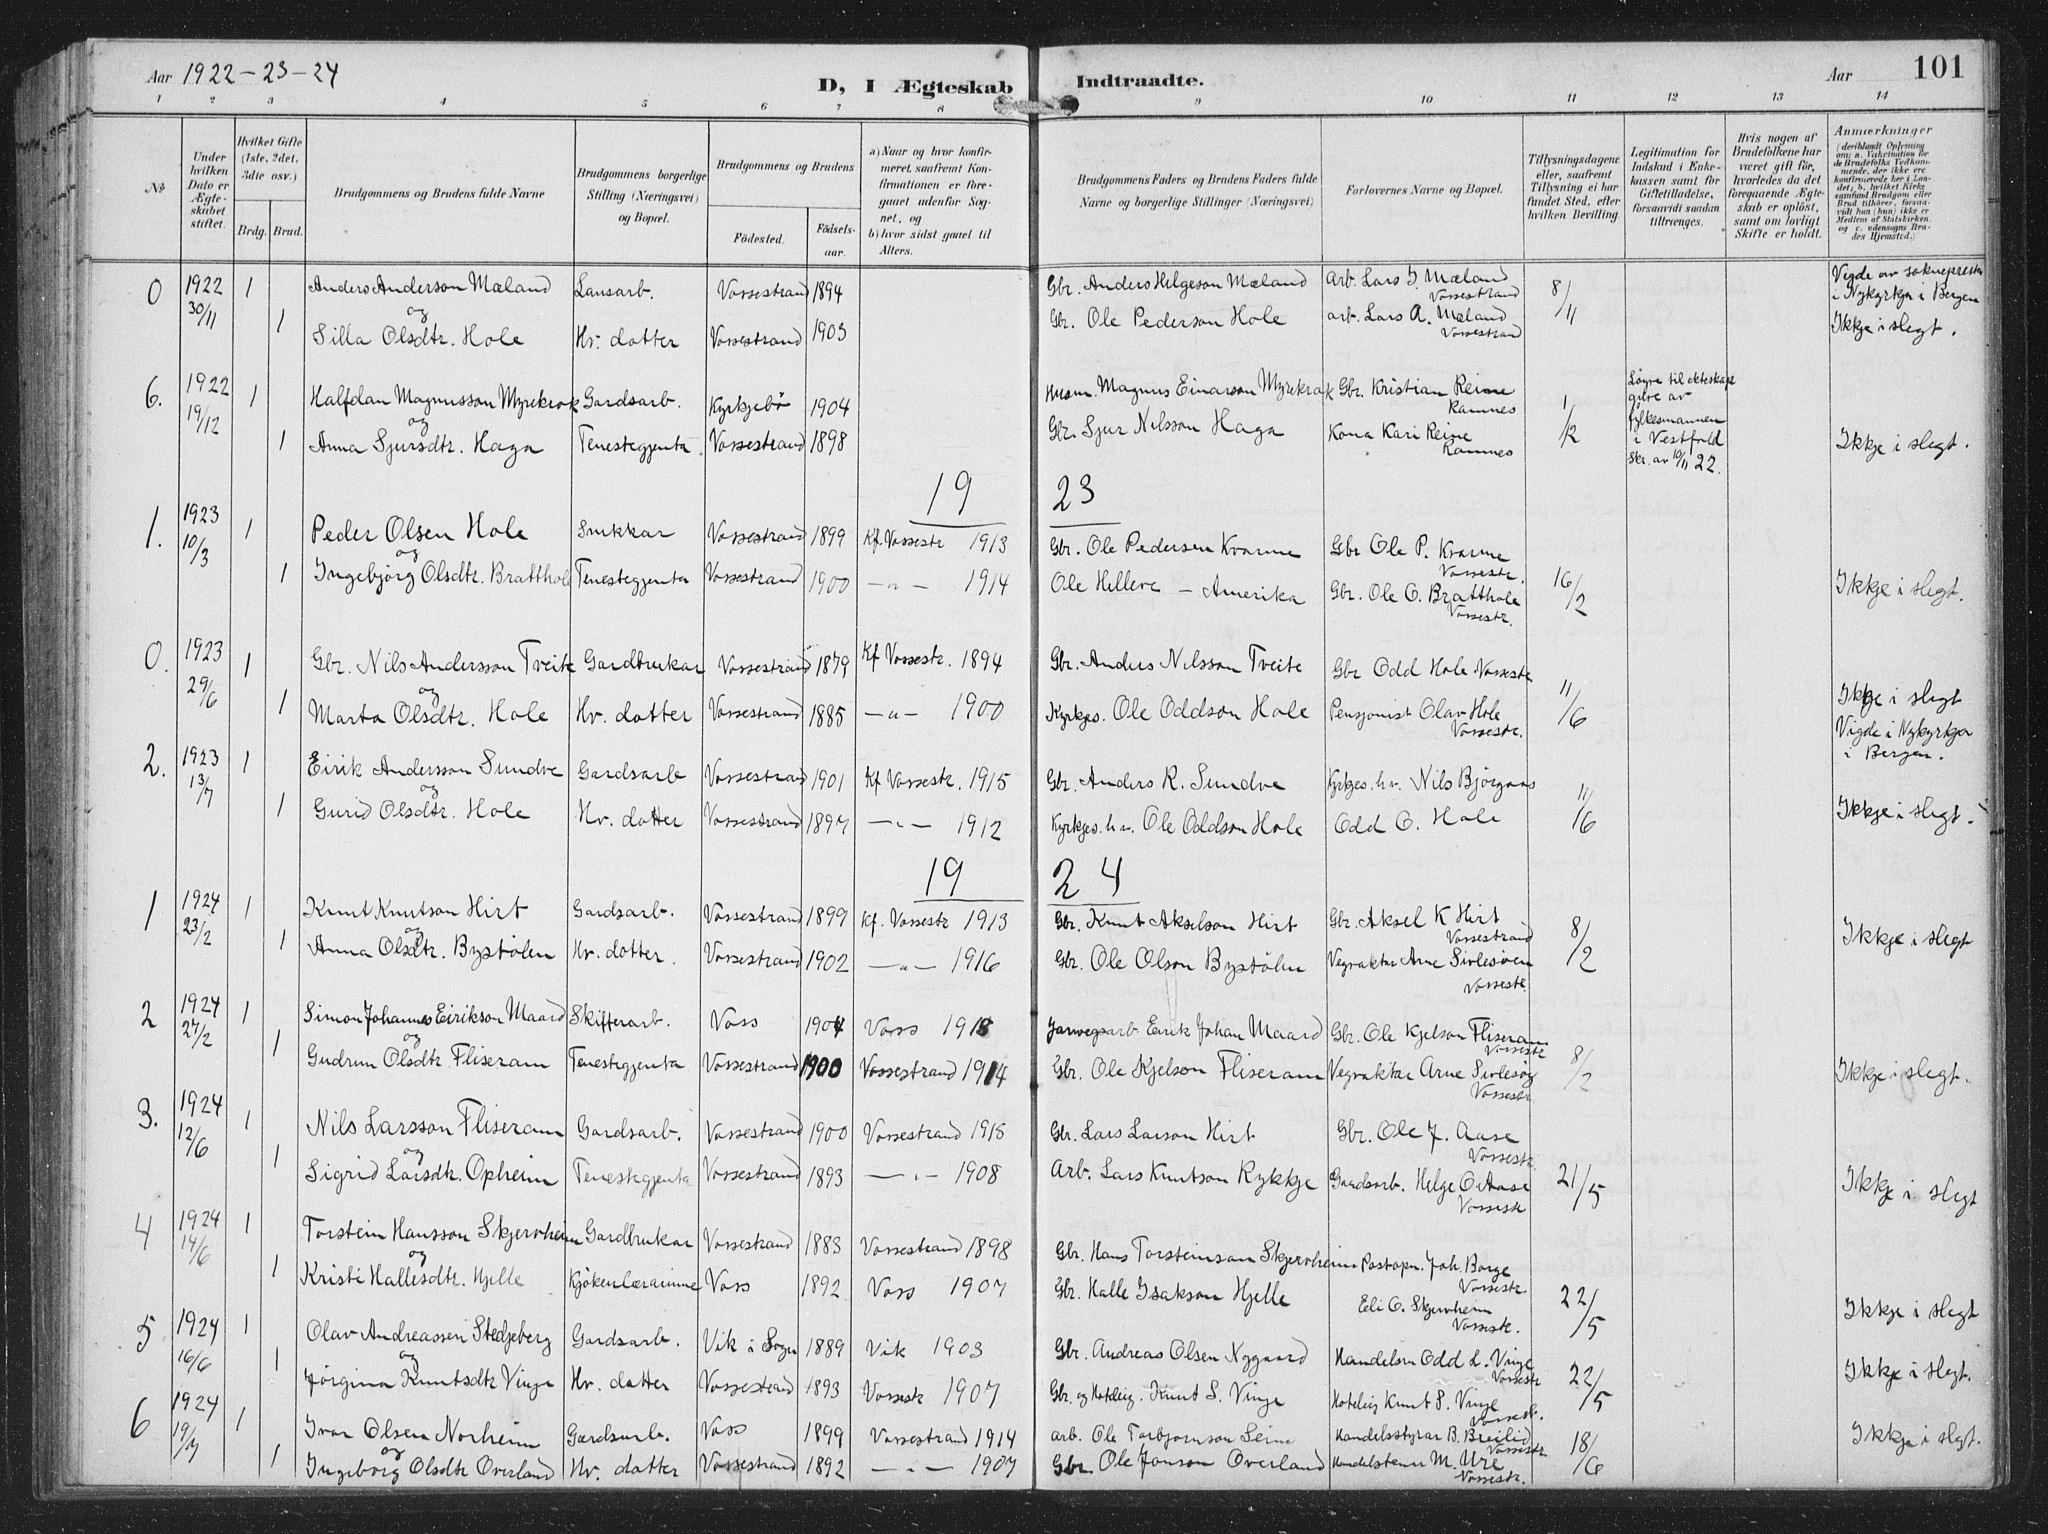 Aar 1922-23-24
D, I Ægteskab Indtraadte.
Aar 101
1 2 3 4 5 6 7 8 9 10 11 12 13 14
No
Under hvilken Dato er Ægteskabet stiftet.
Hvilket Gifte (1ste, 2det, 3die osv.)
Brdg. Brud.
Brudgommens og Brudens fulde Navne
Brudgommens borgerlige Stilling (Næringsvei) og Bopæl.
Brudgommens og Brudens
Fødested. Fødselsaar.
a) Naar og hvor konfirmeret, saafremt Konfirmationen er foregaaet udenfor Sognet, og
b) hvor sidst gaaet til Alters.
Brudgommens Faders og Brudens Faders fulde Navne og borgerlige Stillinger (Næringsvei)
Forlovernes Navne og Bopæl.
Tillysningsdagene eller, saafremt Tillysning ei har fundet Sted, efter hvilken Bevilling.
Legitimation for Indskud i Enkekassen samt for Giftetilladelse, forsaavidt saadan tiltrænges.
Hvis nogen af Brudefolkene har været gift før, hvorledes da det foregaaende Ægteskab er opløst, samt om lovligt Skifte er holdt.
Anmærkninger (deriblandt Oplysning om: a. Vakcination for de Brudefolks Vedkommende, der ikke ere konfirmerede her i Landet; b. hvilket Kirkesamfund Brudgom eller Brud tilhører, forsaavidt han (hun) ikke er Medlem af Statskirken, og c. udensogns Brudes Hjemsted.)
0 1922 1 Anders Anderson Mæland Lausarb. Vossestrand 1894 Gbr. Anders Helgeson Mæland Arb. Lars Mæland Vossestrand 8/11 Vigde av sokneprest i Nykyrkja i Bergen
30/11 og
1 Silla Olsdtr. Hole Hv. dotter Vossestrand 1903 Gbr. Ole Pederson Hole arb. Lars A. Mæland Vossestrand Ikkje i slegt.
6. 1922 1 Halfdan Magnusson Myrekrok Gardsarb. Kyrkjebø 1904 Husm. Magnus Einarson Myrekrok Gbr. Kristian Reine Ramnes 1/12 Løyve til ekteskap gjeve av fylkesmannen i Vestfold Skr. av 10/11 22.
19/12 og
1 Anna Sjursdtr. Haga Tenestegjenta Vossestrand 1898 Gbr. Sjur Nilsson Haga Kona Kari Reine Ramnes Ikkje i slegt.
19 23
1. 1923 1 Peder Olsen Hole Snikkar Vossestrand 1899 Kf. Vossestr 1913 Gbr. Ole Pedersen Kvarme Gbr Ole P. Kvarme Vossestr.
10/3 og
1 Ingebjørg Olsdtr. Bratthole Tenestegjenta Vossestrand 1900 — „ — 1914 Ole Helleve - Amerika Gbr. Ole O. Bratthole Vossestr. 16/2 Ikkje i slegt.
0. 1923 1 Gbr. Nils Andersson Tveite Gardbrukar Vossestrand 1879 Kf Vossestr. 1894 Gbr. Anders Nilsson Tveite Gbr Odd Hole Vossestr
29/6 og
1 Marta Olsdtr. Hole Hv. dotter Vossestrand 1885 — „ — 1900 Kyrkjes. Ole Oddson Hole Pensjonist Olav Hole Vossestr. 11/6 Ikkje i slegt Vigde i Nykyrkja i Bergen.
2. 1923 1 Eirik Andersson Sundve Gardsarb Vossestrand 1901 Kf Vossestr. 1915 Gbr. Anders R. Sundve Kyrkjes. hv. Nils Bjørgaas
13/7 og
1 Gurid Olsdtr. Hole Hv. dotter Vossestrand 1897 — „ — 1912 Kyrkjes. hv. Ole Oddson Hole Odd O. Hole 11/6 Ikkje i slegt.
19 24
1 1924 1 Knut Knutson Hirt Gardsarb. Vossestrand 1899 Kf. Vossestr 1913 Gbr. Knut Akselson Hirt Gbr. Aksel K Hirt Vossestrand
23/2 og
1 Anna Olsdtr. Bystølen Hv. dotter. Vossestrand 1902 — „ — 1916 Gbr. Ole Olson Bystølen Vegvaktar Arne Sivlesøen Vossestr. 8/2 Ikkje i slegt
2 1924 1 Simon Johannes Eirikson Maard Skifterarb. Voss 1904 Voss 1918 Jarnvegsarb Eirik Johan Maard Gbr. Ole Kjelson Fliseram Vossestr
27/2 og
1 Gudrun Olsdtr. Fliseram Tenestegjenta Vossestrand 1900 Vossestrand 1914 Gbr. Ole Kjelson Fliseram Vegvaktar Arne Sivlesøg Vossestr 8/2 Ikkje i slegt.
3. 1924 1 Nils Larsson Fliseram Gardsarb. Vossestrand 1900 Vossestrand 1915 Gbr. Lars Larson Hirt Gbr. Ole J. Aase Vossestr.
12/6 og
1 Sigrid Larsdtr. Opheim Tenestegjenta Vossestrand 1893 — „ — 1908 Arb. Lars Knutson Rykkje Gardsarb. Helge O. Aase Vossestr 21/5 Ikkje i slegt
4 1924 1 Torstein Hansson Skjervheim Gardbrukar Vossestrand 1883 Vossestrand 1898 Gbr. Hans Torsteinson Skjervheim Postopn. Joh. Borge Vossestr
14/6 og
1 Kristi Hallesdtr. Hjelle Kjøkenlærarinne Voss 1892 Voss 1907 Gbr. Halle Isakson Hjelle Eli O. Skjervheim Vossestr. 22/5 Ikkje i slegt
5 1924 1 Olav Andreassen Stedjeberg Gardsarb. Vik i Sogn 1889 Vik 1903 Gbr. Andreas Olsen Nygaard Handelsm Odd L. Vinje Vossestr
16/6 og
1 Jørgina Knutsdtr Vinje Hv. dotter Vossestrand 1893 Vossestr 1907 Gbr. og Hoteleig. Knut S. Vinje Hoteleig Knut S. Vinje Vossestr. 22/5 Ikkje i slegt.
6 1924 1 Ivar Olsen Norheim Gardsarb. Voss 1899 Vossestrand 1914 arb. Ole Torbjørnson Seim Handelsstyrar B. Breilid Vossestr.
19/7 og
1 Ingeborg Olsdtr Overland Hv. dotter Vossestrand 1892 — „ — 1907 Gbr. Ole Jonson Overland Handelstenar M. Ure Vossestr. 18/6 Ikkje i slegt.